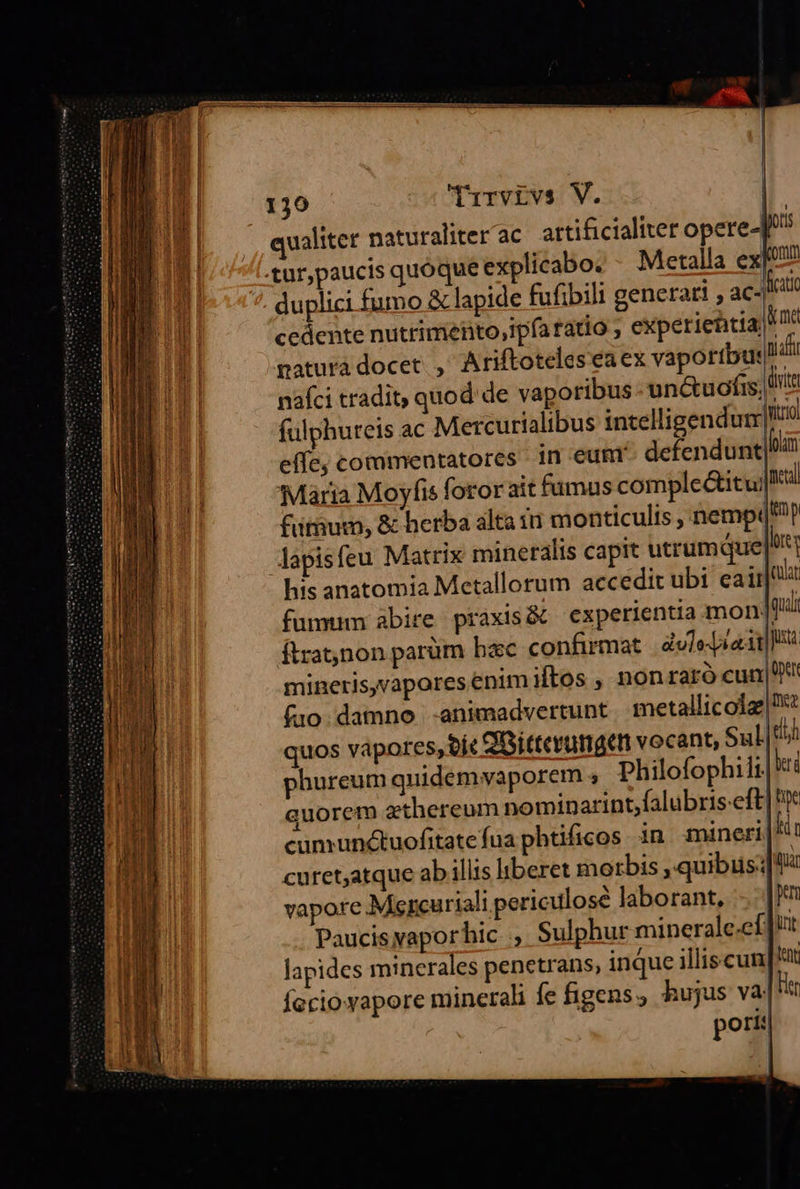 130 TITVLVS V.
qualiter naturaliter ac artificialiter opere-
tur, paucis quoque explicabo. Metalla ex
duplici fumo & lapide fuſibili generari, ac-
cedente nutrimento, ipſa ratio, experientia
natura docet, Ariſtoteles ea ex vaporibus
naſci tradit, quod de vaporibus unctuoſis,
ſulphureis ac Mercurialibus intelligendum
eſſe, commentatores in eum defendunt
Maria Moyſis ſoror ait fumus complectitur
fumum, & herba alta in monticulis, nempe
lapis ſeu Matrix mineralis capit utrumque
his anatomia Metallorum accedit ubi ea in
fumum abire praxis & experientia mon-
ſtrat, non parùm hæc confirmat it
mineris, vapores enim iſtos, non rarò cum
ſuo damno animadvertunt metallicolæ
quos vapores, die Witterungen vocant, Sul
phureum quidem vaporem, Philoſophi li
quorem æthereum nominarint, ſalubris eſt
cum unctuoſitate ſua phtiſicos in mineri
curet, atque ab illis liberet morbis, quibus
vapore Mercuriali periculosè laborant,
Paucis vapor hic, Sulphur minerale eſ
lapides minerales penetrans, inque illis cum
ſocio vapore minerali ſe figens, hujus va-
poris